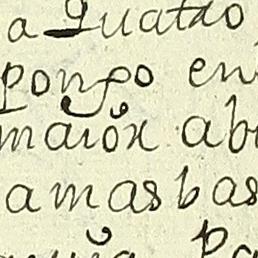 a Quatro
pongo en
maior ab
amas bas